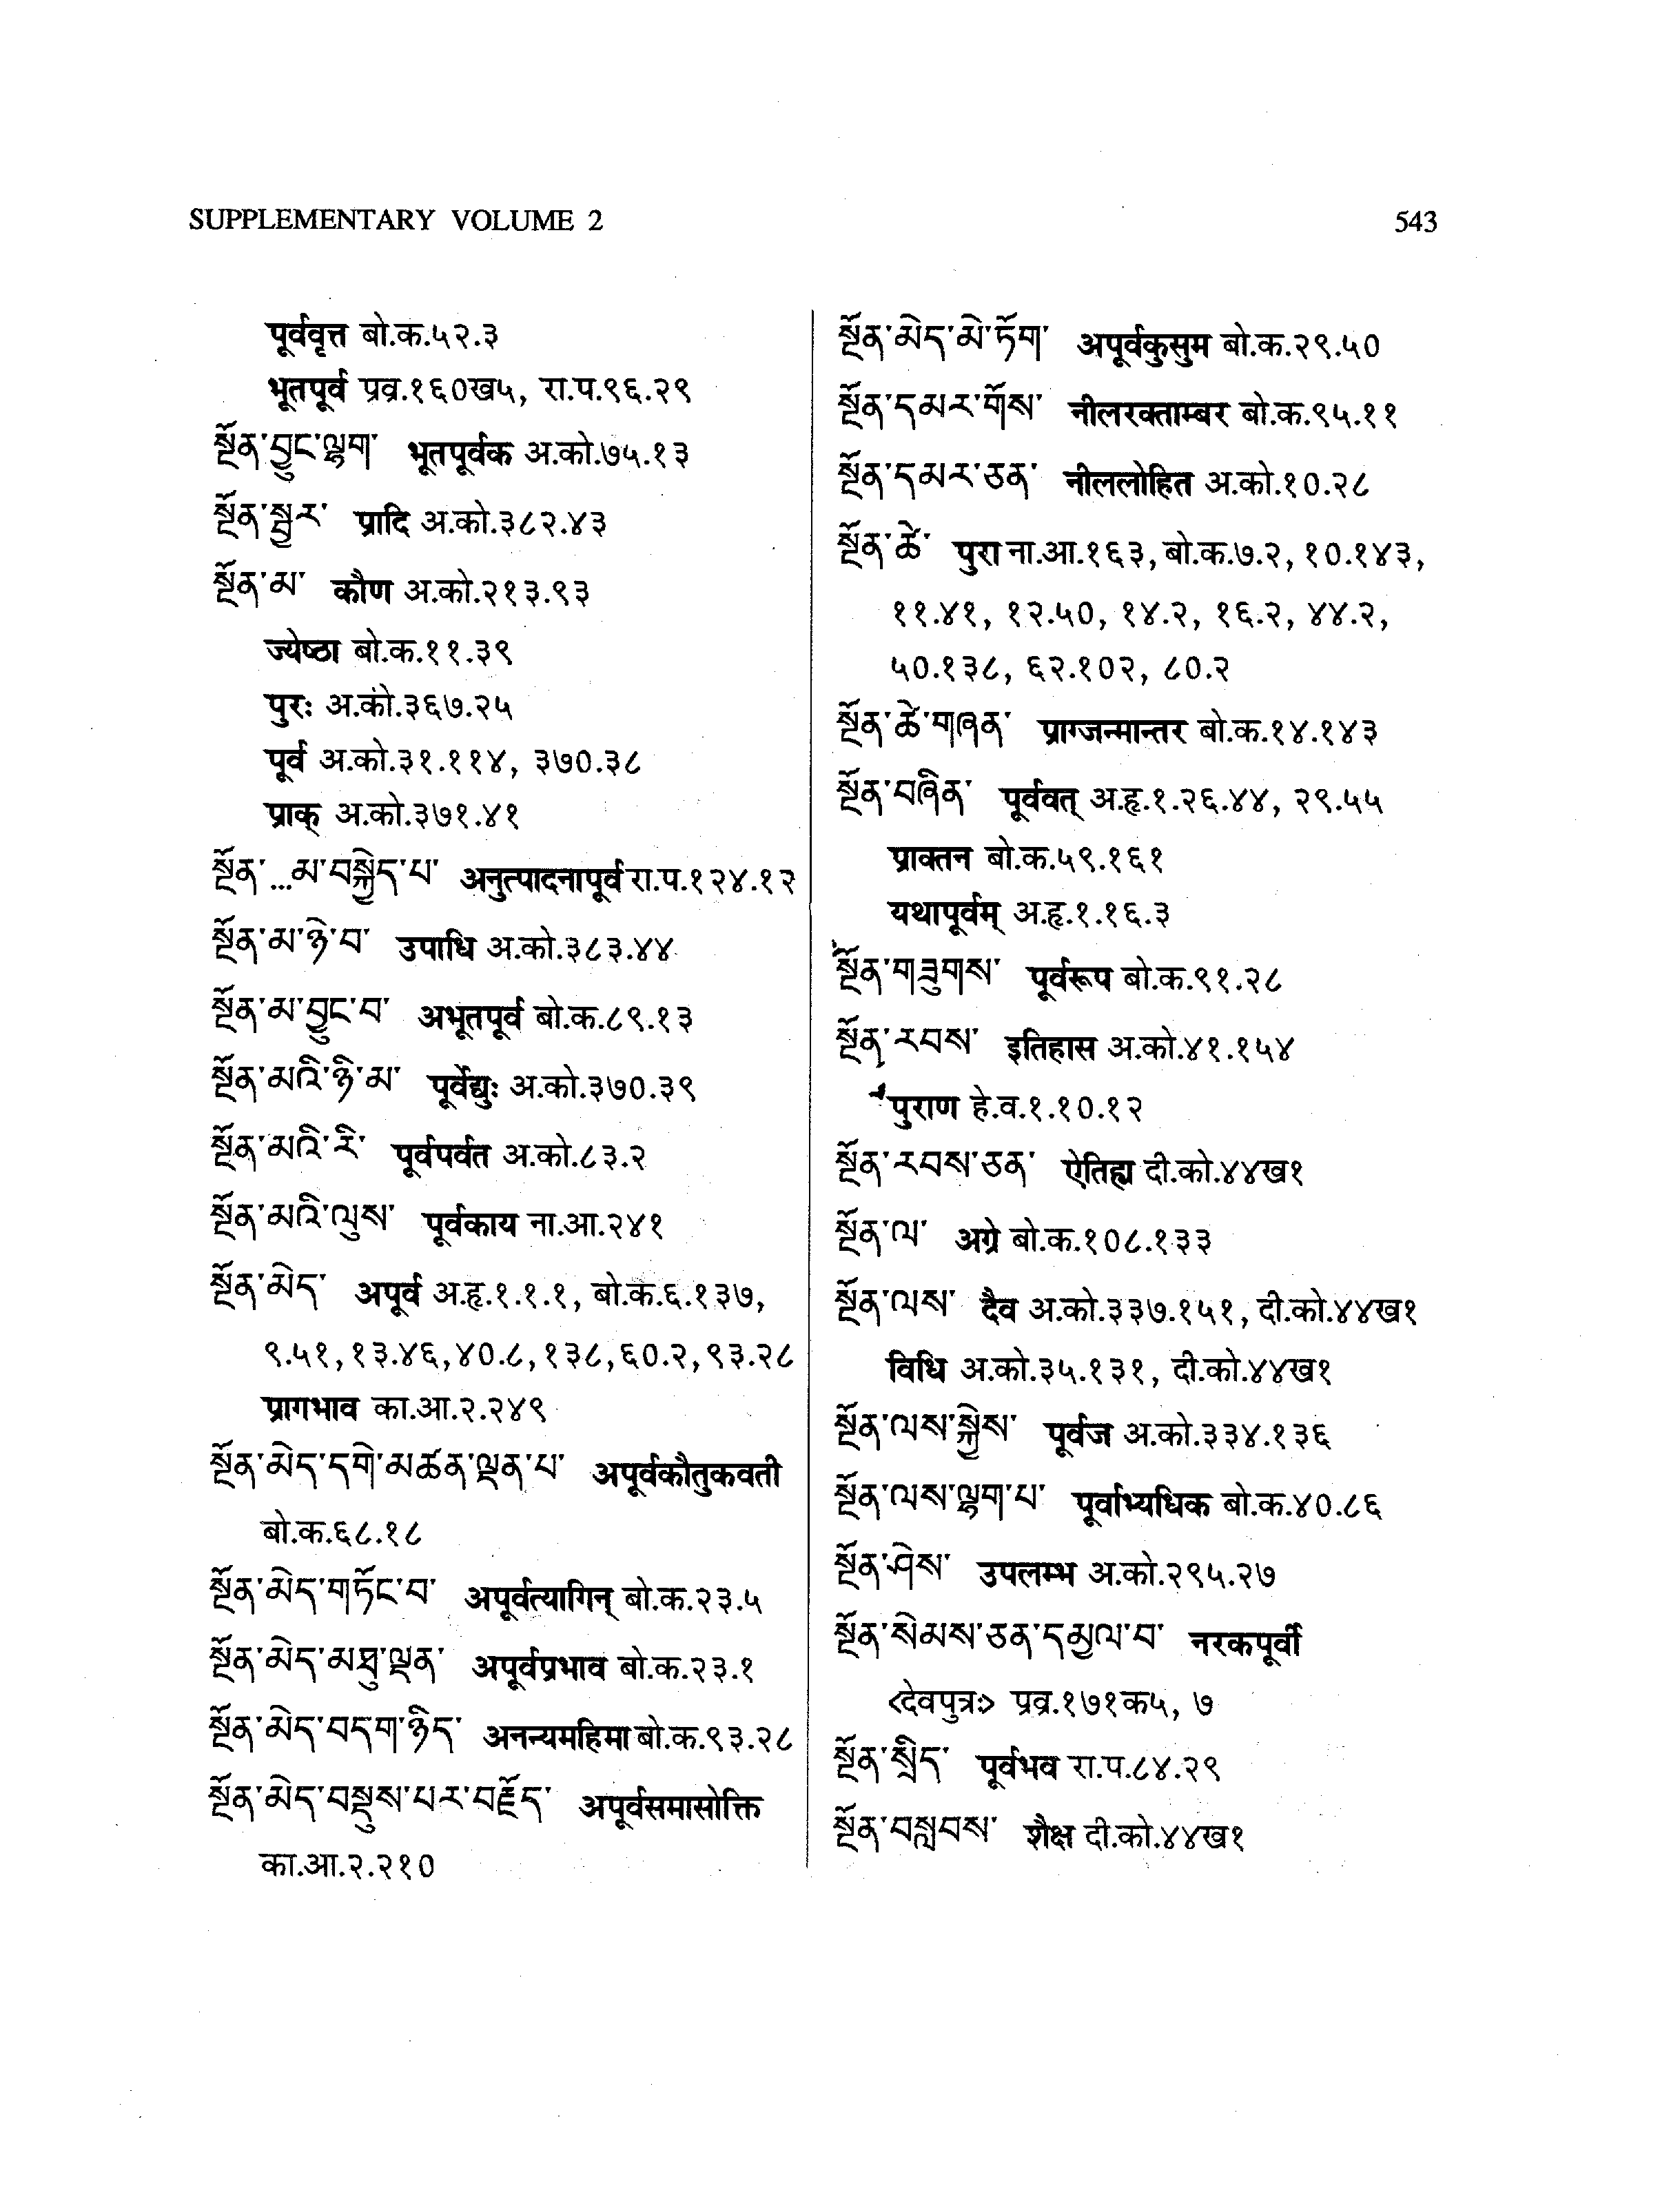 SUPPLEMENTARY VOLUME 2 543
पूर्ववृत्त बो.क.५२.३
भूतपूर्व प्रव्र.१६०ख५, रा.प.९६.२९
སྔོན་བྱུང་ལྷག་ भूतपूर्वक अ.को.७५.१३
སྔོན་སྦྱར་ प्रादि अ.को.३८२.४३
སྔོན་མ་ कौण अ.को.२१३.९३
ज्येष्ठा बो.क.११.३९
पुरः अ.को.३६७.२५
पूर्व अ.को.३१.११४, ३७०.३८
प्राक् अ.को.३७१.४१
སྔོན་...མ་བསྐྱེད་པ་ अनुत्पादनापूर्व रा.प.१२४.१२
སྔོན་མ་ཉེ་བ་ उपाधि अ.को.३८३.४४
སྔོན་མ་བྱུང་བ་ अभूतपूर्व बो.क.८९.१३
སྔོན་མའི་ཉི་མ་ पूर्वेद्युः अ.को.३७०.३९
སྔོན་མའི་རི་ पूर्वपर्वत अ.को.८३.२
སྔོན་མའི་ལུས་ पूर्वकाय ना.आ.२४१
སྔོན་མེད་ अपूर्व अ.हृ.१.१.१, बो.क.६.१३७,
९.५१,१३.४६,४०.८,१३८,६०.२,९३.२८
प्रागभाव का.आ.२.२४९
སྔོན་མེད་དགེ་མཚན་ལྡན་པ་ अपूर्वकौतुकवती
बो.क.६८.१८
སྔོན་མེད་གཏོང་བ་ अपूर्वत्यागिन् बो.क.२३.५
སྔོན་མེད་མཐུ་ལྡན་ अपूर्वप्रभाव बो.क.२३.१
སྔོན་མེད་བདག་ཉིད་ अनन्यमहिमा बो.क.९३.२८
སྔོན་མེད་བསྡུས་པར་བརྗོད་ अपूर्वसमासोक्ति
का.आ.२.२१०
སྔོན་མེད་མེ་ཏོག་ अपूर्वकुसुम बो.क.२९.५०
སྔོན་དམར་གོས་ नीलरक्ताम्बर बो.क.९५.११
སྔོན་དམར་ཅན་ नीललोहित अ.को.१०.२८
སྔོན་ཚེ་ पुरा ना.आ.१६३, बो.क.७.२, १०.१४३,
११.४१, १२.५०, १४.२, १६.२, ४४.२,
५०.१३८, ६२.१०२, ८०.२
སྔོན་ཚེ་གཞན་ प्राग्जन्मान्तर बो.क.१४.१४३
སྔོན་བཞིན་ पूर्ववत् अ.हृ.१.२६.४४, २९.५५
प्राक्तन बो.क.५९.१६१
यथापूर्वम् अ.हृ.१.१६.३
སྔོན་གཟུགས་ पूर्वरूप बो.क.९१.२८
སྔོན་རབས་ इतिहास अ.को.४१.१५४
पुराण हे.व.१.१०.१२
སྔོན་རབས་ཅན་ ऐतिह्य दी.को.४४ख१
སྔོན་ལ་ अग्रे बो.क.१०८.१३३
སྔོན་ལས་ दैव अ.को.३३७.१५१, दी.को.४४ख१
विधि अ.को.३५.१३१, दी.को.४४ख१
སྔོན་ལས་སྐྱེས་ पूर्वज अ.को.३३४.१३६
སྔོན་ལས་ལྷག་པ་ पूर्वाभ्यधिक बो.क.४०.८६
སྔོན་ཤེས་ उपलम्भ अ.को.२९५.२७
སྔོན་སེམས་ཅན་དམྱལ་བ་ नरकपूर्वी
<देवपुत्रः> प्रव्र.१७१क५, ७
སྔོན་སྲིད་ पूर्वभव रा.प.८४.२९
སྔོན་བསླབས་ शैक्ष दी.को.४४ख१